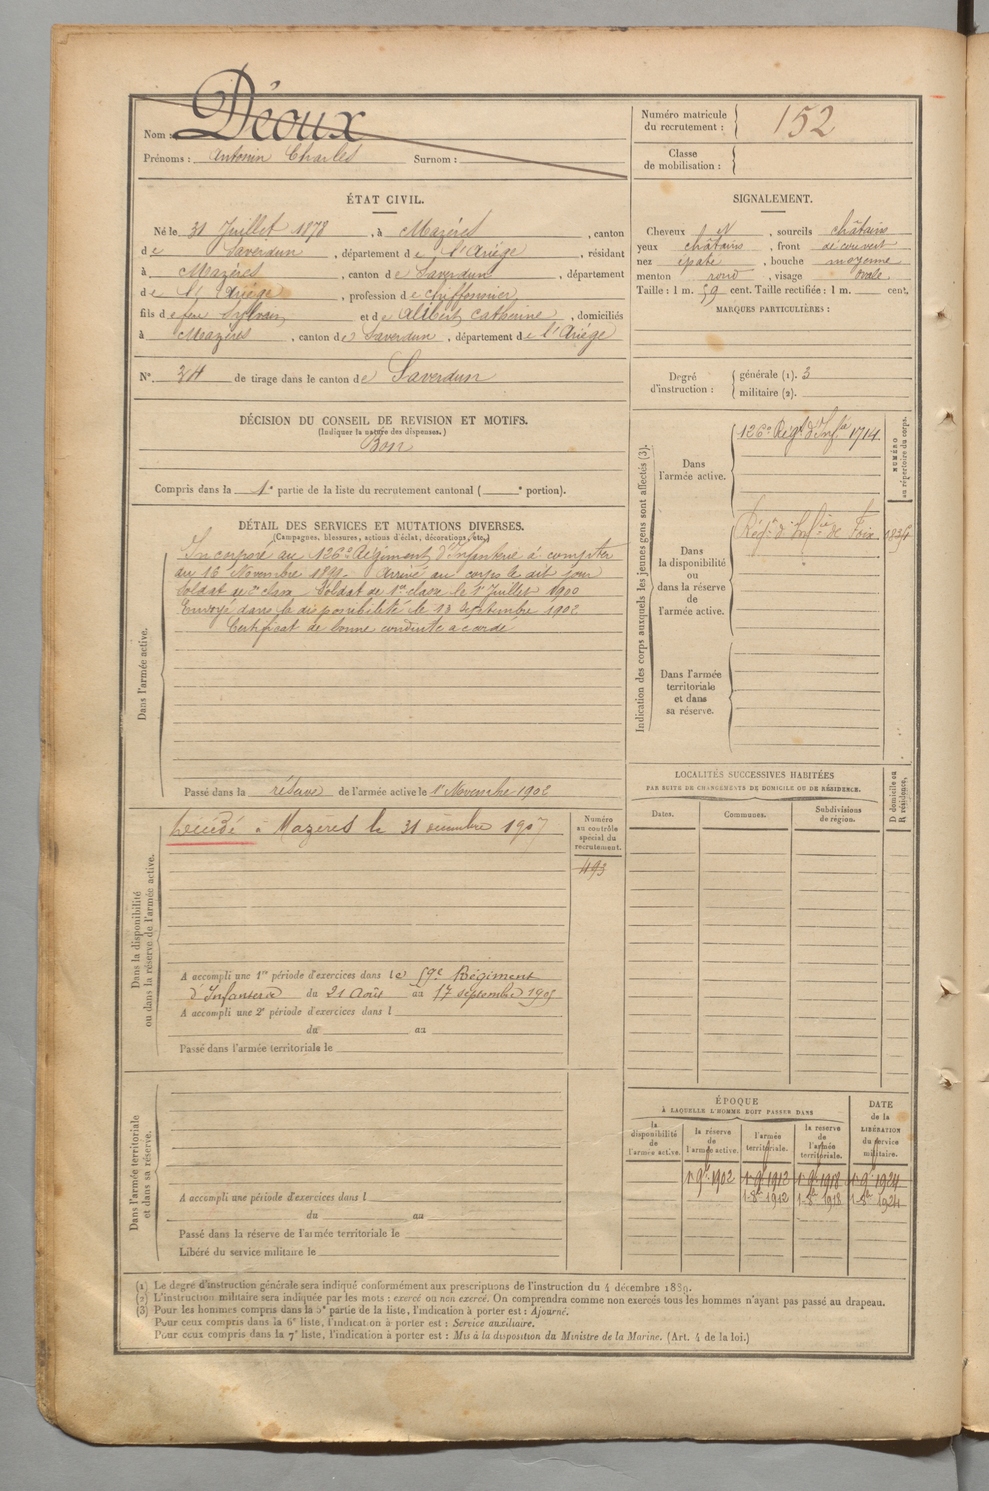 Nom : Déoux
Prénoms : Antonin Charles Surnom :
Numéro matricule du recrutement : 152
Classe de mobilisation :
ÉTAT CIVIL.
Né le 31 Juillet 1878, à Mazères, canton
de Saverdun, département de l'Ariège, résidant
à Mazères, canton de Saverdun, département
de l'Ariège, profession de chiffonnier
fils de feu Sylvain et de Alibert Catherine, domiciliés
à Mazères, canton de Saverdun, département de l'Ariège
N° 34 de tirage dans le canton de Saverdun
SIGNALEMENT.
Cheveux N, sourcils châtains
yeux châtains, front découvert
nez épaté, bouche moyenne
menton rond, visage ovale.
Taille : 1 m. 59 cent. Taille rectifiée : 1 m. cent.
MARQUES PARTICULIÈRES :
Degré d'instruction : générale (1). 3
militaire (2).
DÉCISION DU CONSEIL DE REVISION ET MOTIFS.
(Indiquer la nature des dispenses.)
Bon
Compris dans la 1e partie de la liste du recrutement cantonal ( e portion).
DÉTAIL DES SERVICES ET MUTATIONS DIVERSES.
(Campagnes, blessures, actions d'éclat, décorations, etc.)
Dans l'armée active.
Incorporé au 126e Régiment d'Infanterie à compter
du 16 Novembre 1899. Arrivé au corps le dit jour
Soldat de 2e classe. Soldat de 1re classe le 1r Juillet 1900
Envoyé dans la disponibilité le 18 Septembre 1902
Certificat de bonne conduite accordé
Passé dans la réserve de l'armée active le 1r Novembre 1902
Indication des corps auxquels les jeunes gens sont affectés (3).
Dans l'armée active.
126e Régt d'Infie 1714
NUMÉRO au répertoire du corps.
Dans la disponibilité ou dans la réserve de l'armée active.
Régt d'Infie de Foix
Dans l'armée territoriale et dans sa réserve.
Dans la disponibilité ou dans la réserve de l'armée active.
Décédé à Mazères le 31 décembre 1907
Numéro au contrôle spécial du recrutement.
493
A accompli une 1re période d'exercices dans le 59e Régiment
d'Infanterie du 21 Août au 17 septembre 1905
A accompli une 2e période d'exercices dans l
du au
Passé dans l'armée territoriale le
LOCALITÉS SUCCESSIVES HABITÉES
PAR SUITE DE CHANGEMENTS DE DOMICILE OU DE RÉSIDENCE.
D domicile ou R résidence.
Dates. Communes. Subdivisions de région.
Dans l'armée territoriale et dans sa réserve.
A accompli une période d'exercices dans l
du au
Passé dans la réserve de l'armée territoriale le
Libéré du service militaire le
ÉPOQUE
À LAQUELLE L'HOMME DOIT PASSER DANS
DATE de la LIBÉRATION du service militaire.
la disponibilité de l'armée active. la réserve de l'armée active. l'armée territoriale. la réserve de l'armée territoriale.
1r 9bre 1902 1r 9bre 1912 1r 9bre 1918 1r 9bre 1924
1-8bre 1912 1-8bre 1918 1-8bre 1924
(1) Le degré d'instruction générale sera indiqué conformément aux prescriptions de l'instruction du 4 décembre 1889.
(2) L'instruction militaire sera indiquée par les mots : exercé ou non exercé. On comprendra comme non exercés tous les hommes n'ayant pas passé au drapeau.
(3) Pour les hommes compris dans la 5e partie de la liste, l'indication à porter est : Ajourné.
Pour ceux compris dans la 6e liste, l'indication à porter est : Service auxiliaire.
Pour ceux compris dans la 7e liste, l'indication à porter est : Mis à la disposition du Ministre de la Marine. (Art. 4 de la loi.)